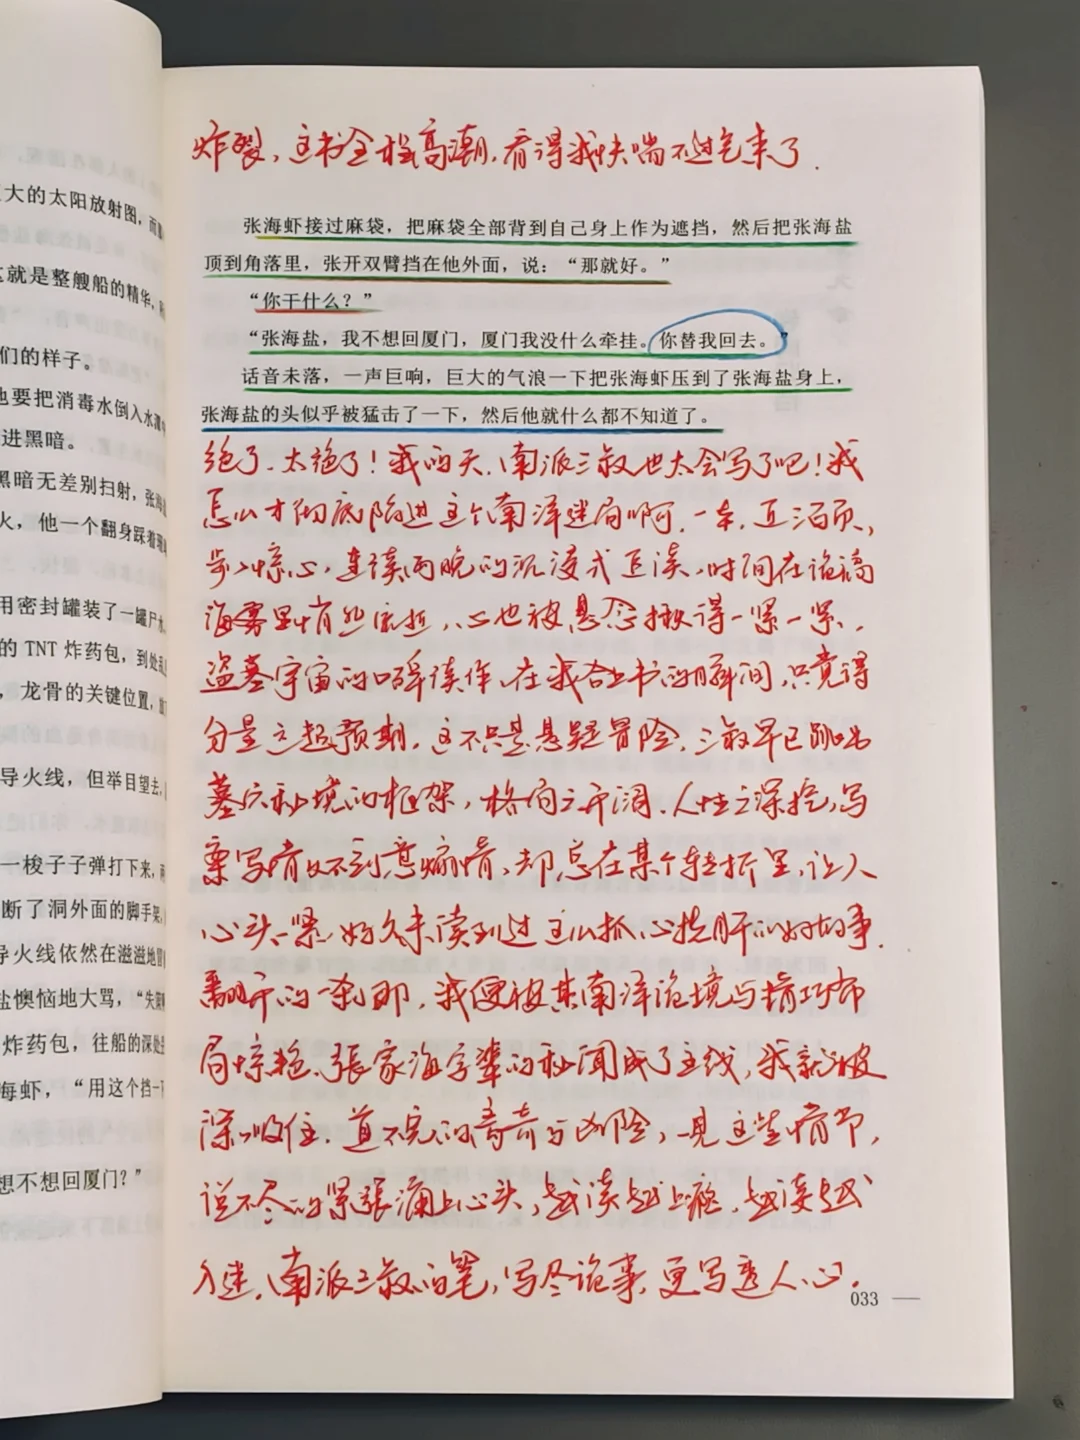 炸裂，这书全程高潮，看得我快喘不过气来了．
张海虾接过麻袋，把麻袋全部背到自己身上作为遮挡，然后把张海盐
顶到角落里，张开双臂挡在他外面，说：“那就好。”
“你干什么？”
“张海盐，我不想回厦门，厦门我没什么牵挂。你替我回去。”
话音未落，一声巨响，巨大的气浪一下把张海虾压到了张海盐身上，
张海盐的头似乎被猛击了一下，然后他就什么都不知道了。
绝了、太绝了！我的天、南派三叔也太会写了吧！我
怎么才彻底陷进这个南洋迷局啊．一本、五百页，
步步惊心，连续两晚的沉浸式阅读，时间在诡谲
海雾里悄然流逝，心也被悬念揪得一紧一紧．
盗墓宇宙的口碑续作、在我合上书的瞬间，只觉得
分量远超预期，这不只是悬疑冒险，三叔早已跳出
墓穴秘境的框架，格局之开阔、人性之深挖，写
案写情从不刻意煽情，却总在某个转折里，让人
心头一紧，好久未读到过这么抓心挠肝的好故事．
翻开的一刹那，我便被其南洋诡境与精巧布
局惊艳、張家海字辈的秘闻成了主线，我就被
深深吸住．道不完的离奇与凶险，一見这些情节，
说不尽的紧张涌上心头，越读越上瘾，越读越
入迷．南派三叔的笔，写尽诡事，更写透人心．
大的太阳放射图，而
这就是整艘船的精华，
们的样子。
也要把消毒水倒入水
进黑暗。
黑暗无差别扫射，张海
火，他一个翻身踩着
用密封罐装了一罐尸水
的 TNT 炸药包，到处
，龙骨的关键位置，
导火线，但举目望去，
一梭子子弹打下来，
断了洞外面的脚手架，
导火线依然在滋滋地
盐懊恼地大骂，“失
炸药包，往船的深处
海虾，“用这个挡一下
想不想回厦门？”
033